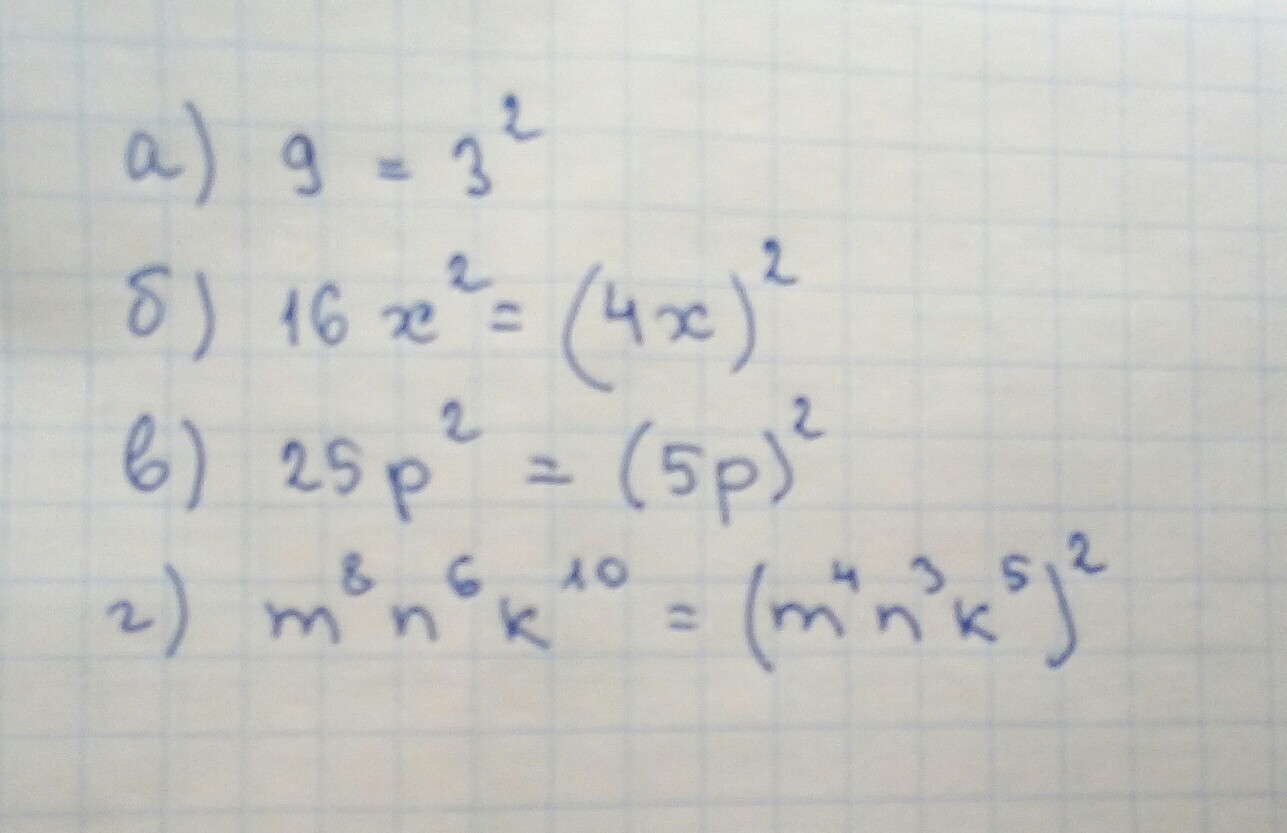 а) 9 = 3²
б) 16x² = (4x)²
в) 25p² = (5p)²
г) m⁸n⁶k¹⁰ = (m⁴n³k⁵)²